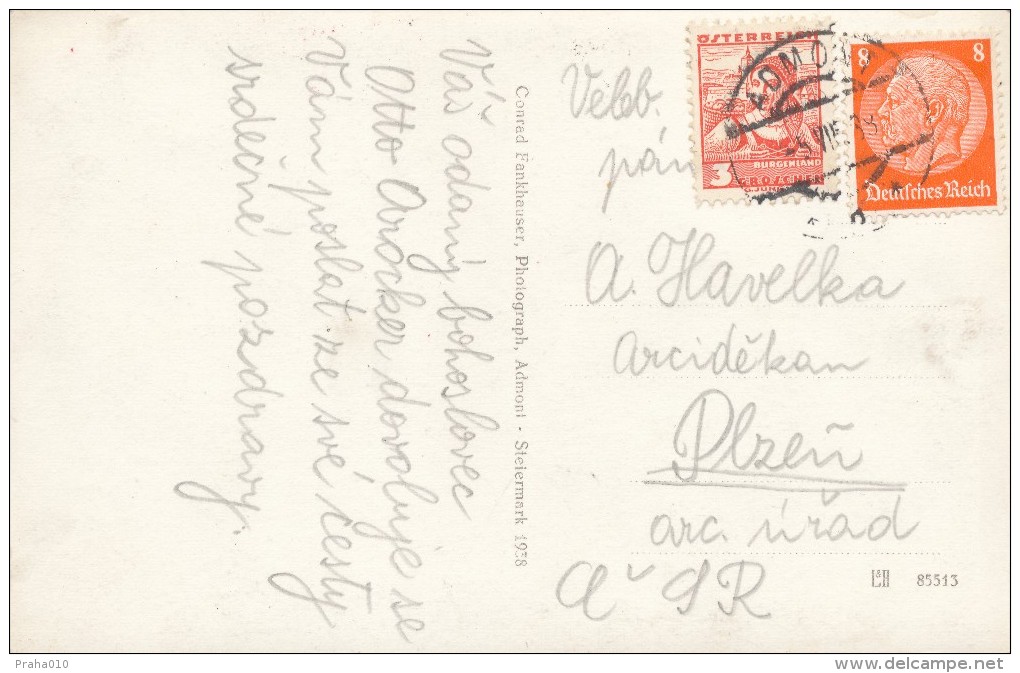 Váš odaný bohoslovec
Otto Arocker dovoluje se
Vám poslat ze své cesty
srdečné pozdravy.
Conrad Fankhauser, Photograph, Admont - Steiermark 1938
ÖSTERREICH
BURGENLAND
3 GROSCHEN
8 8
Deutsches Reich
ADMONT
Veleb.
pán
A. Havelka
Arciděkan
Plzeň
arc. úřad
ČSR
85513
Praha010
www.delcampe.net